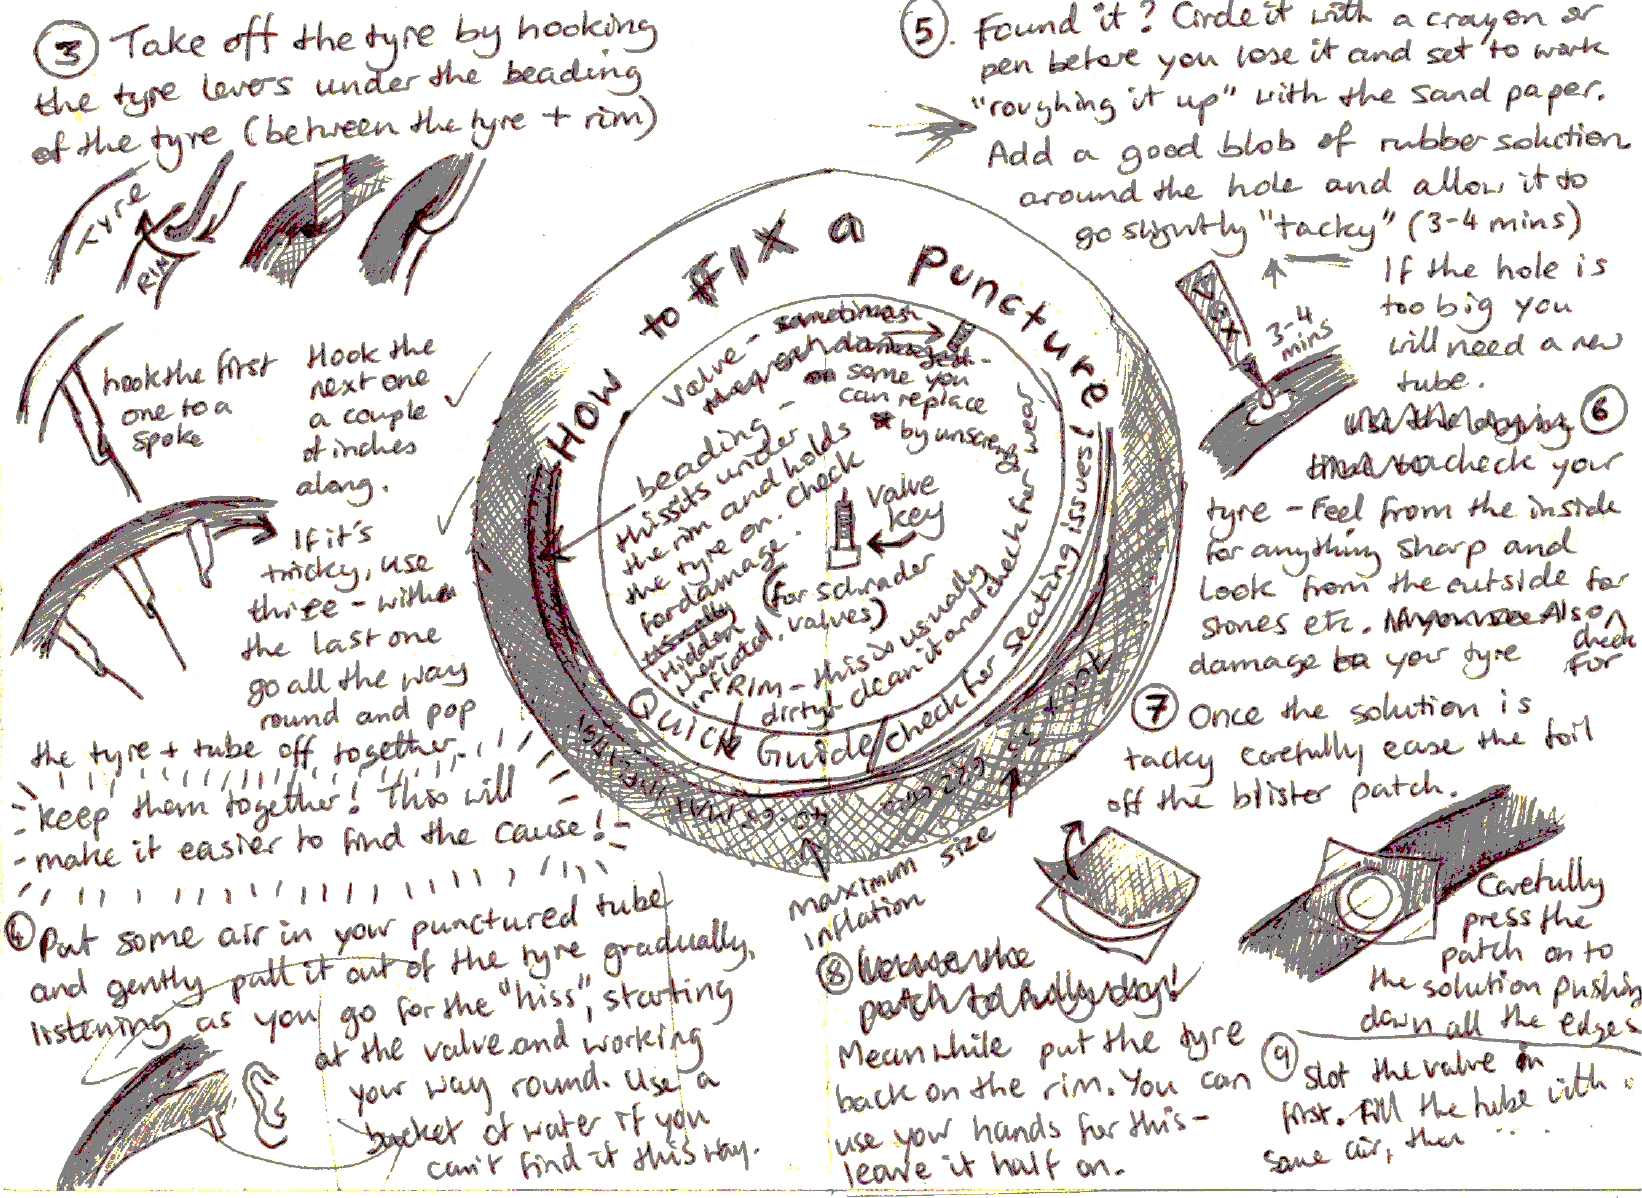 3 Take off the tyre by hooking
the tyre levers under the beading
of the tyre (between the tyre + rim)
tyre
RIM
hook the first
one to a
spoke
Hook the
next one
a couple
of inches
along.
If it's
tricky, use
three - with
the last one
go all the way
round and pop
the tyre + tube off together.
keep them together! This will
make it easier to find the cause!
4 Put some air in your punctured tube
and gently pull it out of the tyre gradually,
listening as you go for the "hiss", starting
at the valve and working
your way round. Use a
bucket of water if you
can't find it this way.
HOW to FIX a Puncture!
Quick Guide
valve - sometimes
damaged -
some you
can replace
by unscrewing
beading -
this sits under
the rim and holds
the tyre on. check
for damage.
Hidden
when
inflated
valve
key
(for schrader
valves)
RIM - this is usually
dirty - clean it and check for wear
/check for seating issues!
maximum
inflation
size
5. Found it? Circle it with a crayon or
pen before you lose it and set to work
"roughing it up" with the sand paper.
Add a good blob of rubber solution
around the hole and allow it to
go slightly "tacky" (3-4 mins)
3-4
mins
If the hole is
too big you
will need a new
tube.
6
check your
tyre - Feel from the inside
for anything sharp and
Look from the outside for
stones etc. Also
check
for
damage to your tyre
7 Once the solution is
tacky carefully ease the foil
off the blister patch.
Carefully
press the
patch on to
the solution pushing
down all the edges
8
Meanwhile put the tyre
back on the rim. You can
use your hands for this -
leave it half on.
9 Slot the valve in
first. Fill the tube with
some air, then ....